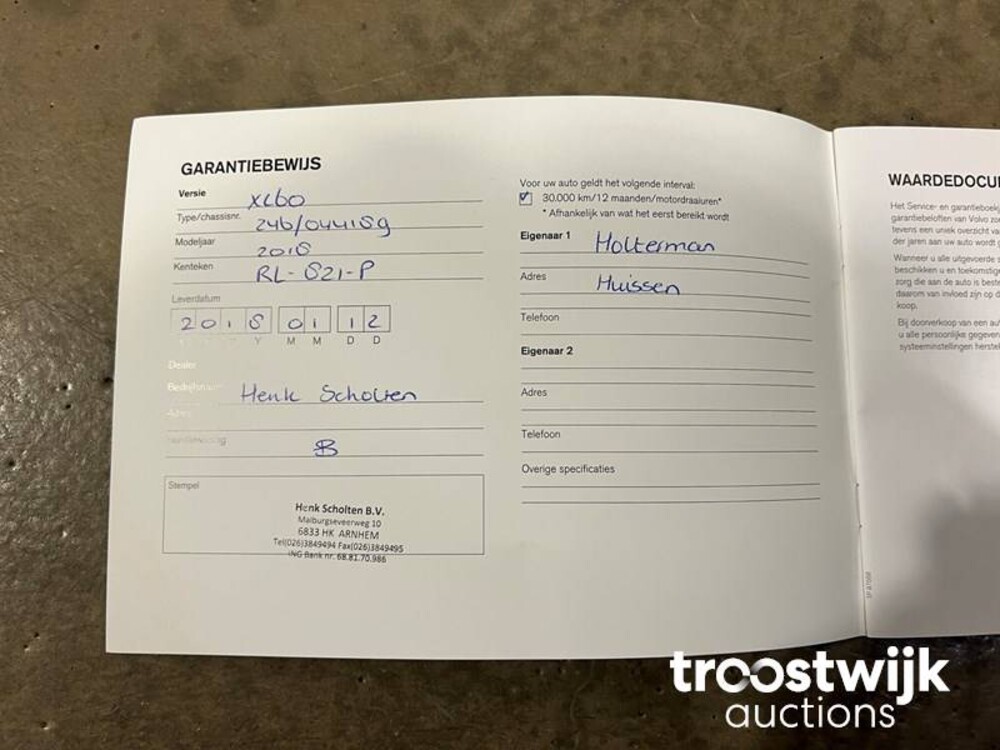 GARANTIEBEWIJS
Versie XC60
Type/chassisnr. 246/044189
Modeljaar 2018
Kenteken RL-821-P
Leverdatum
2018 01 12
Y M M D D
Dealer
Bedrijfsnaam Henk Scholten
Adres
Handtekening
Stempel
Henk Scholten B.V.
Malburgseveerweg 10
6833 HK ARNHEM
Tel(026)3849494 Fax(026)3849495
ING Bank nr. 68.81.70.986
Voor uw auto geldt het volgende interval:
30.000 km/12 maanden/motordraaiuren*
* Afhankelijk van wat het eerst bereikt wordt
Eigenaar 1 Holterman
Adres Huissen
Telefoon
Eigenaar 2
Adres
Telefoon
Overige specificaties
WAARDEDOCU
Het Service- en garantieboekj
garantiebeloften van Volvo zo
tevens een uniek overzicht va
der jaren aan uw auto wordt g
Wanneer u alle uitgevoerde s
beschikken u en toekomstige
zorg die aan de auto is beste
daarom van invloed zijn op d
koop.
Bij doorverkoop van een au
u alle persoonlijke gegeven
systeeminstellingen herstel
troostwijk
auctions